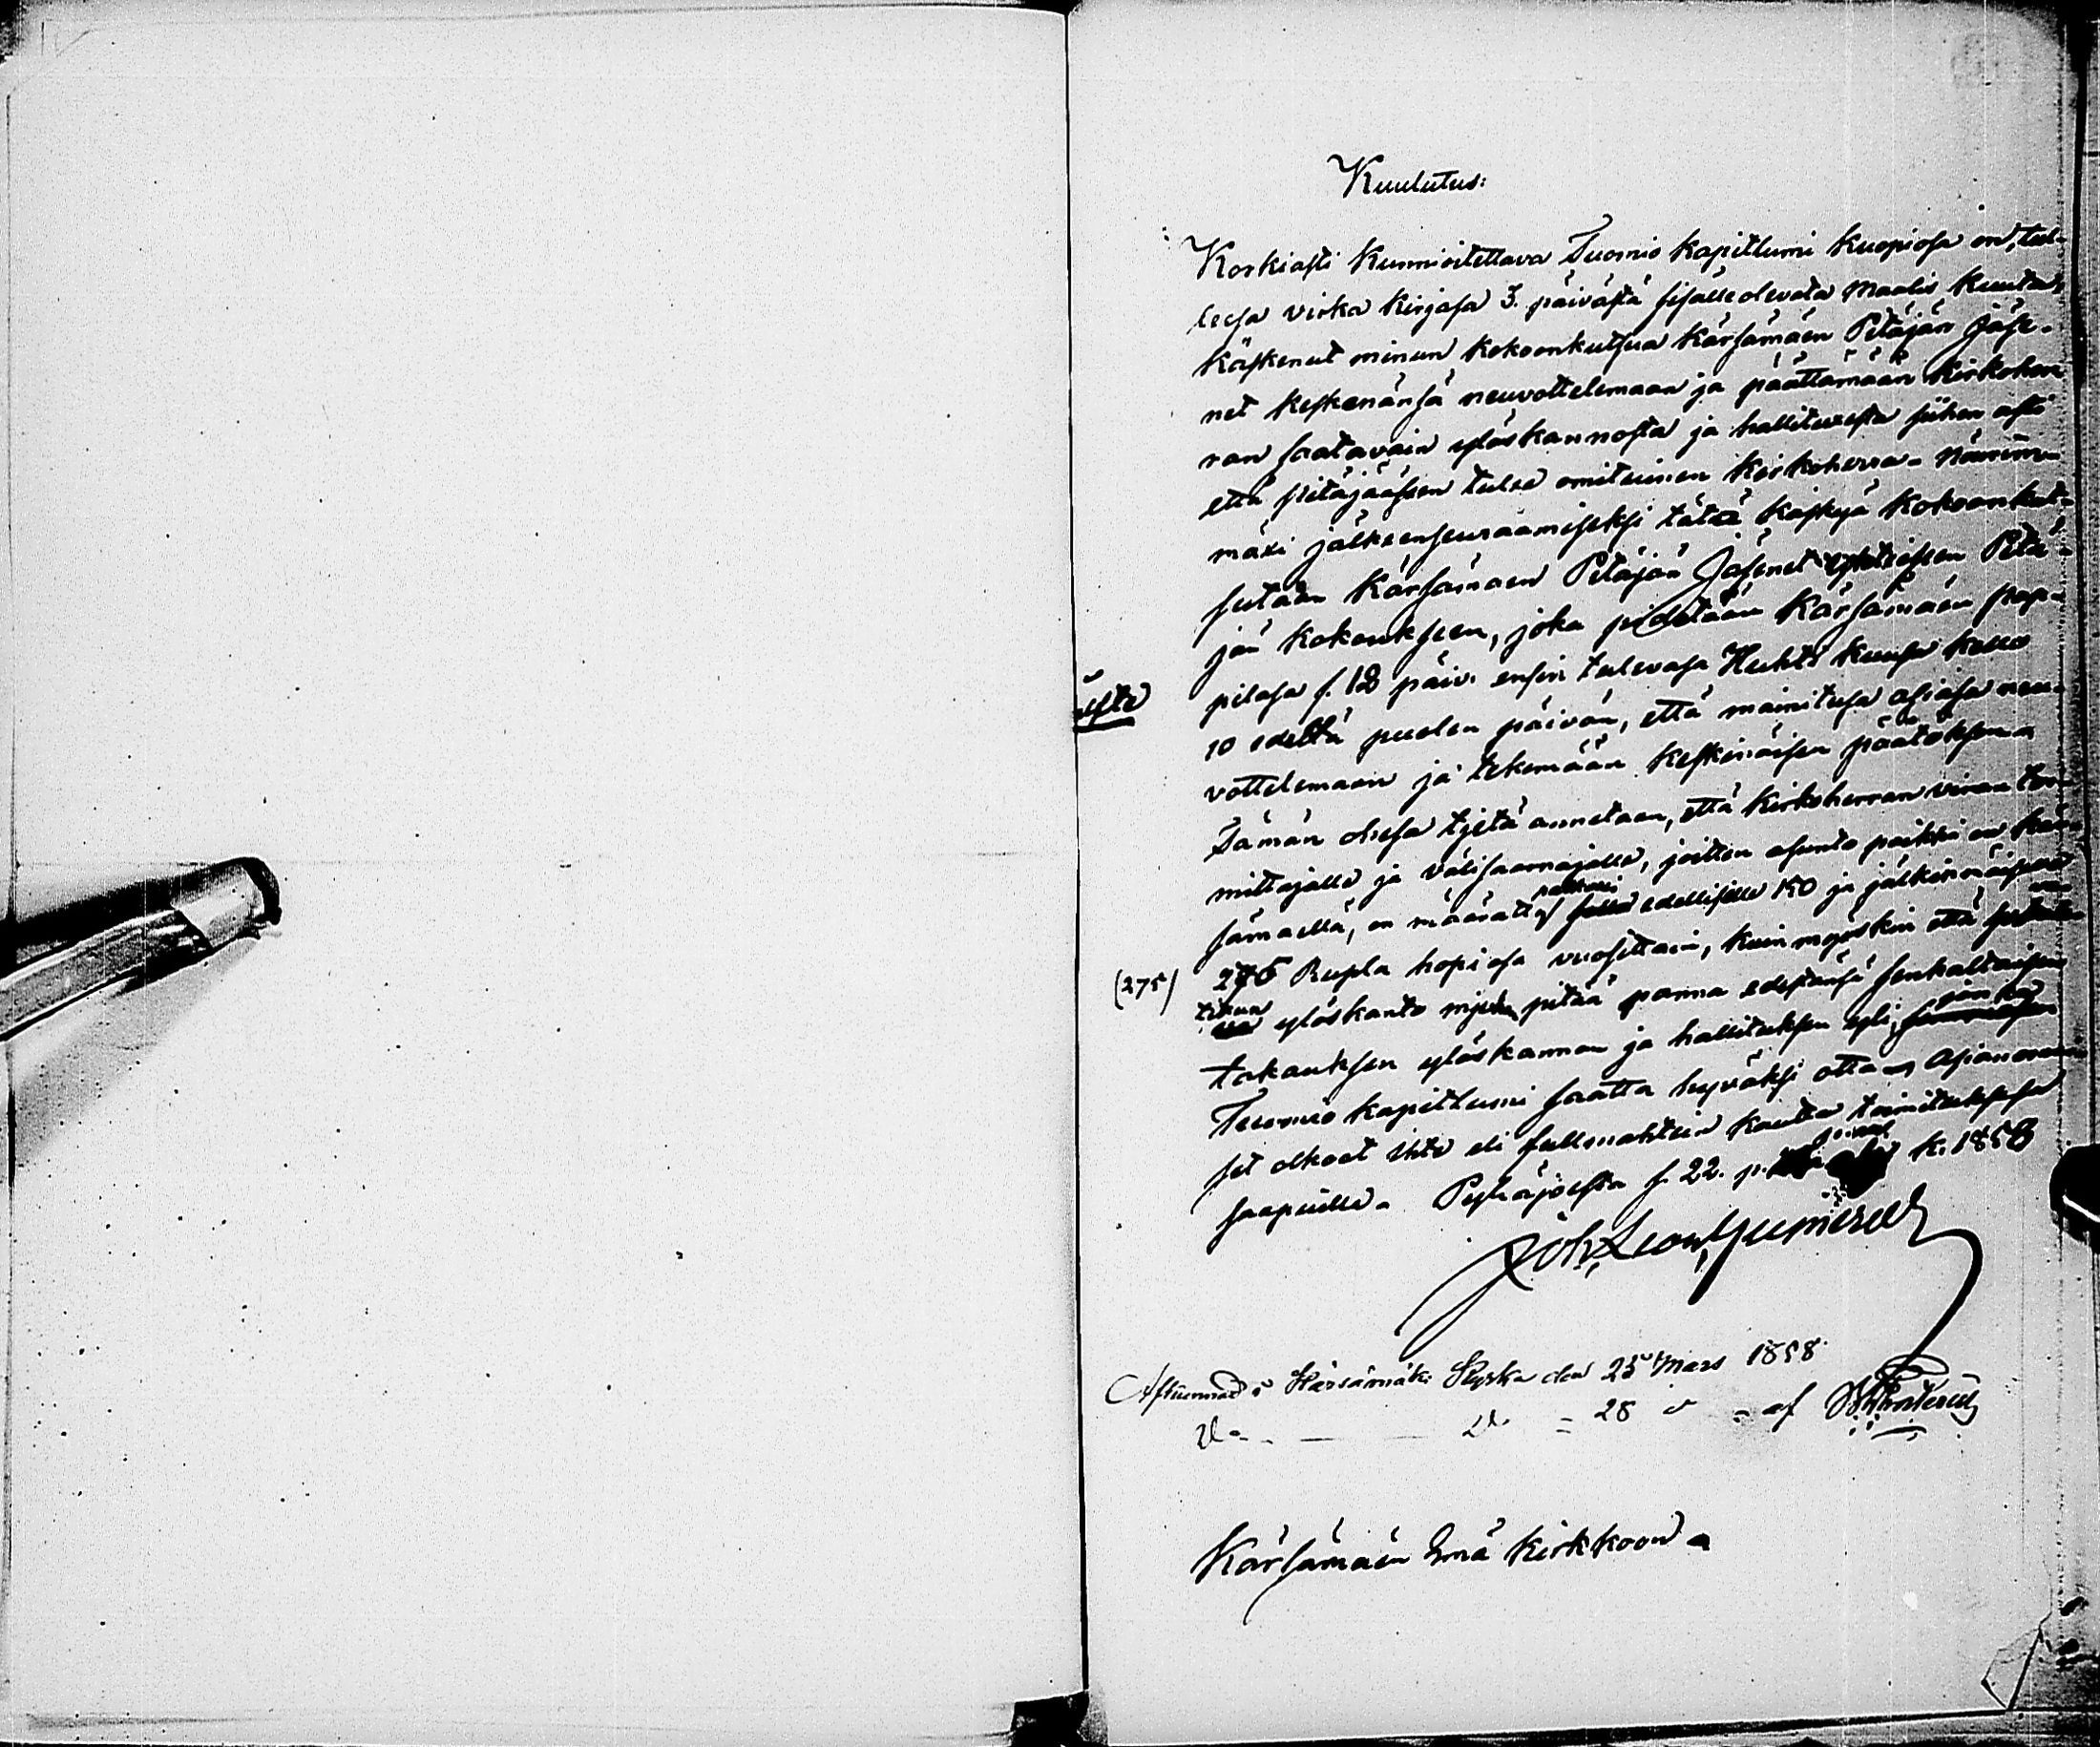 Kuulutus:
Korkiasti Kunnioitettava Tuomio Kapitlumi Kuopiosa on, tul-
lesa virka Kirjasa 3. päivästä sisälleolevata Maalis Kuuta,
Käskenut minun Kokoonkutsua Kärsämäen Pitäjän Jäse-
net Keskenänsä neuvottelemaan ja päättämään Kirkoher-
ran saatavain ylöskannosta ja hallituxesta siihen asti
että pitäjääsen tulee omituinen Kirkoherra.
mäxi jälkeenseuraamiseksi tätä Käskyä Kokoonkut-
sutaan Kärsämäen Pitäjän Jäsenet yhteiseen Pitä-
jän Kokoukseen, joka pidetään Kärsämäen pap-
pilasa s. 12 päiv. ensin tulevasa Huhti Kuusa kello
10 edellä puolen päivän, että mainitusa asiasa neu-
vottelemaan ja tekemään Keskinäisen päätöksen.
Tämän ohesa tietä annetaan, että Kirkoherran viran toi-
mittajalle ja välisaarnajalle, joitten asunto paikka on Kär-
sämaellä, on määrätty palkaxi edelliselle 150 ja jälkimmäiselle
(275) 276 Rupla hopiasa vuosittain, kuin myöskin että
ylöskanto miehen pitää panna edestänsä senkaltaisen
takauksen ylöskannon ja hallituksen yli,
Tuomio Kapitlumi saatta hyväksi ottaa. Asianomai-
set olkoot itse eli fullmahtein kautta toimituksesa
saapuilla. Pyhäjoella s. 22. p. K. 1858
Joh. Leon.
Afkunnad i Kärsämäki Kyrka den 25 Mars 1858
D. - - - D. = 28 - af
Kärsämäen Emä Kirkkoon.